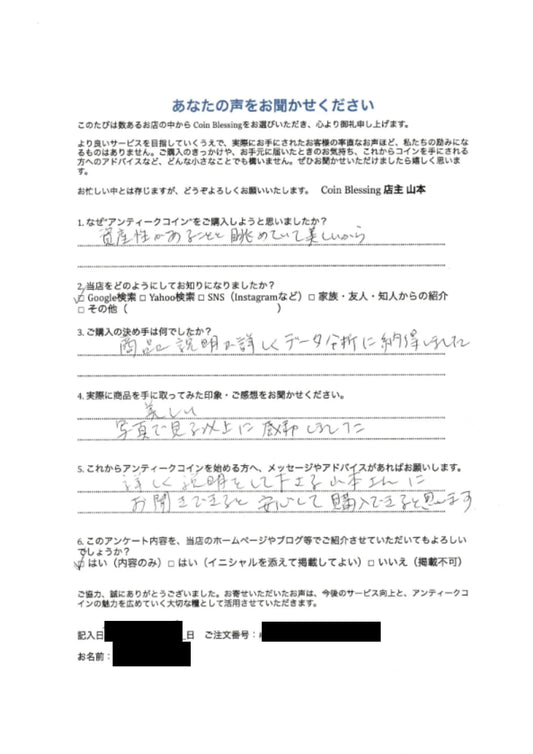 あなたの声をお聞かせください
このたびは数あるお店の中から Coin Blessingをお選びいただき、心より御礼申し上げます。
より良いサービスを目指していくうえで、実際にお手にされたお客様の率直なお声ほど、私たちの励みにな
るものはありません。ご購入のきっかけや、お手元に届いたときのお気持ち、これからコインを手にされる
方へのアドバイスなど、どんな小さなことでも構いません。ぜひお聞かせいただけましたら嬉しく思いま
す。
お忙しい中とは存じますが、どうぞよろしくお願いいたします。 Coin Blessing 店主 山本
1. なぜ"アンティークコイン"をご購入しようと思いましたか？
資産性があることと眺めていて美しいから
2. 当店をどのようにしてお知りになりましたか？
☑ Google検索 □ Yahoo検索 □ SNS（Instagramなど）□ 家族・友人・知人からの紹介
□ その他（ ）
3. ご購入の決め手は何でしたか？
商品の説明が詳しくデータ分析に納得しました
4. 実際に商品を手に取ってみた印象・ご感想をお聞かせください。
美しい
写真で見る以上に感動しました
5. これからアンティークコインを始める方へ、メッセージやアドバイスがあればお願いします。
詳しく説明をして下さる山本さんに
お聞きできると安心して購入できると思います
6. このアンケート内容を、当店のホームページやブログ等でご紹介させていただいてもよろしい
でしょうか？
☑ はい（内容のみ）□ はい（イニシャルを添えて掲載してよい）□ いいえ（掲載不可）
ご協力、誠にありがとうございました。お寄せいただいたお声は、今後のサービス向上と、アンティークコ
インの魅力を広めていく大切な糧として活用させていただきます。
記入日 日 ご注文番号：
お名前：